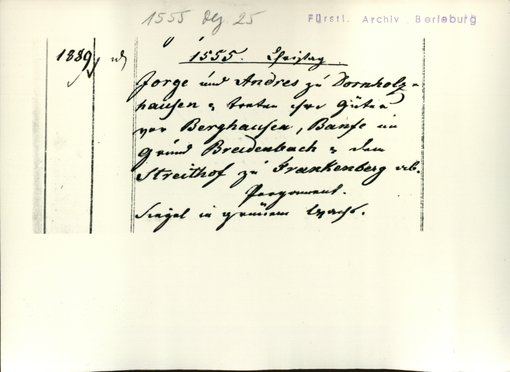 1555 Dez. 25
Fürstl. Archiv Berleburg
1889
1555. Christag.
Jorge und Andres zu Dornholz-
hausen treten ihre Güter
vor Berghausen, Banfe im
Grund Breidenbach u dem
Streithof zu Frankenberg ab.
Pergament.
Siegel in grünem Wachs.